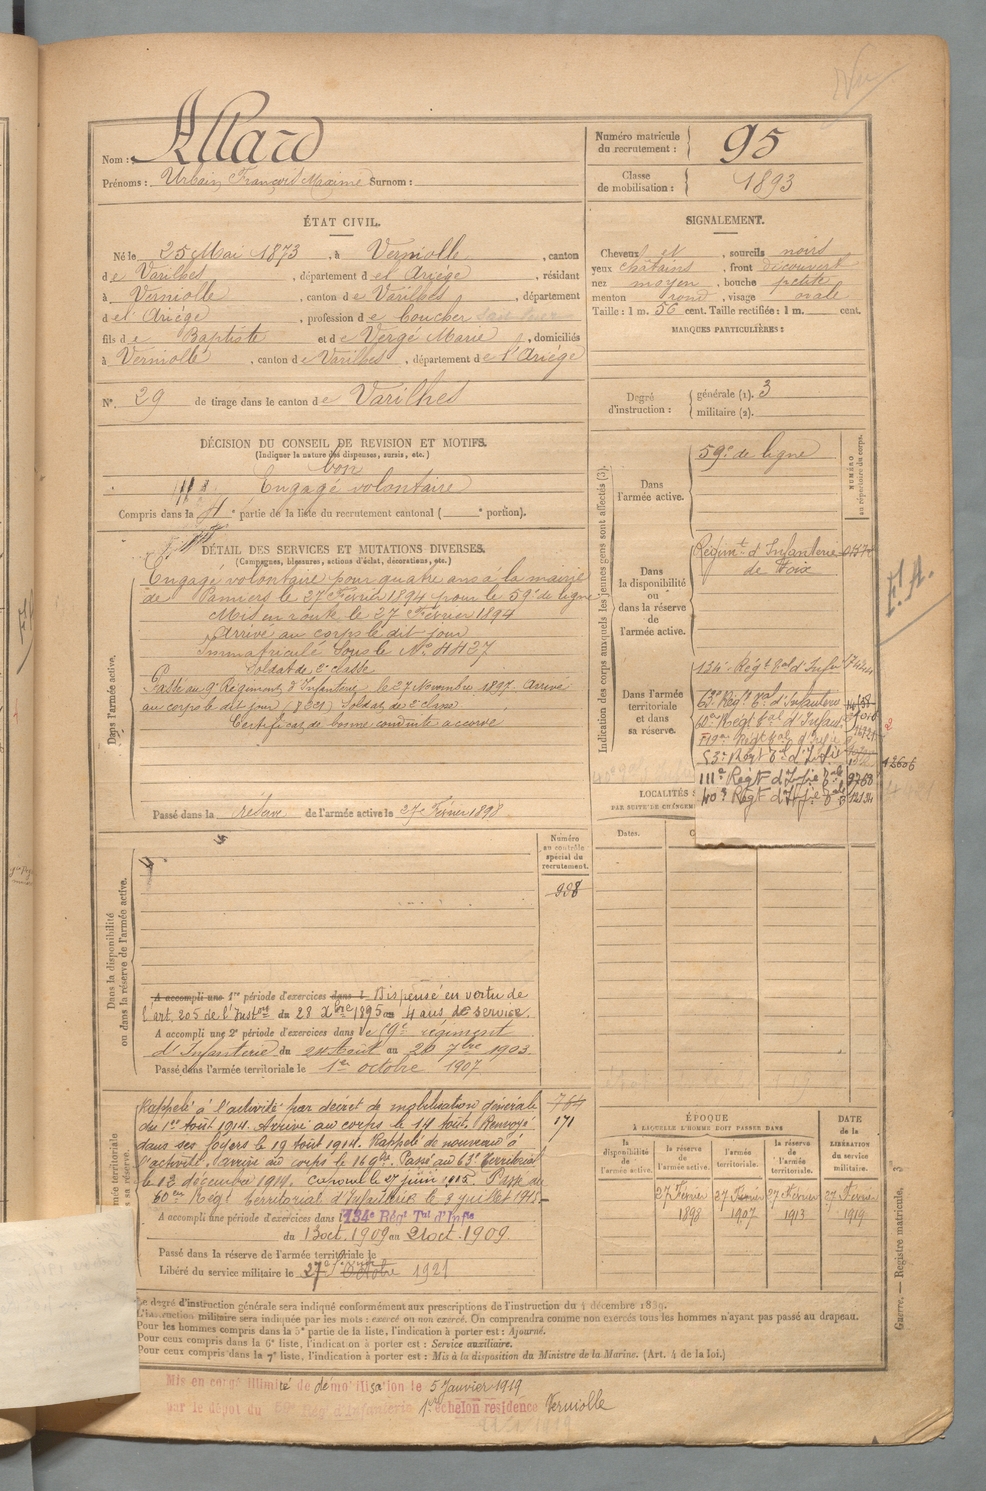 Nom : Allard
Prénoms : Urbain François Maxime Surnom :
Numéro matricule du recrutement : 95
Classe de mobilisation : 1893
ÉTAT CIVIL.
Né le 25 Mai 1873, à Verniolle, canton
de Varilhes, département de l'Ariège, résidant
à Verniolle, canton de Varilhes, département
de l'Ariège, profession de boucher
fils de Baptiste et de Vergé Marie, domiciliés
à Verniolle, canton de Varilhes, département de l'Ariège
N° 29 de tirage dans le canton de Varilhes
SIGNALEMENT.
Cheveux et, sourcils noirs
yeux châtains, front découvert
nez moyen, bouche petite
menton rond, visage ovale
Taille : 1 m. 56 cent. Taille rectifiée : 1 m. cent.
MARQUES PARTICULIÈRES :
Degré d'instruction : générale (1). 3
militaire (2).
DÉCISION DU CONSEIL DE REVISION ET MOTIFS.
(Indiquer la nature des dispenses, sursis, etc.)
bon
Engagé volontaire
Compris dans la partie de la liste du recrutement cantonal ( ° portion).
DÉTAIL DES SERVICES ET MUTATIONS DIVERSES.
(Campagnes, blessures, actions d'éclat, décorations, etc.)
Dans l'armée active.
Engagé volontaire pour quatre ans à la mairie
de Pamiers le 27 Février 1894 pour le 59e de ligne
Mis en route le 27 Février 1894
Arrivé au corps le dit jour
Immatriculé sous le No
Soldat de 2e classe
Passé au 9e Régiment d'Infanterie le 27 Novembre 1897. Arrivé
au corps le dit jour Soldat de 2e classe
Certificat de bonne conduite accordé
Passé dans la réserve de l'armée active le 27 Février 1898
Indication des corps auxquels les jeunes gens sont affectés (3).
NUMÉRO au répertoire du corps.
Dans l'armée active.
59e de ligne
Dans la disponibilité ou dans la réserve de l'armée active.
Régimt d'Infanterie
de Foix
Dans l'armée territoriale et dans sa réserve.
134e Régt tal d'Infie
63e Régt tal d'Infanterie
60e Régt tal d'Infant
53e Régt tal d'Infie
12606
111e Régt d'Infie tale 9768
40e Régt d'Infie tale
F.A.
LOCALITÉS
PAR SUITE DE CHANGEM
Dates.
Dans la disponibilité ou dans la réserve de l'armée active.
Numéro au contrôle spécial du recrutement.
998
A accompli une 1re période d'exercices dans l Dispensé en vertu de
l'art. 205 de l'Instons du 28 Xbre 1895 au 4 ans de service.
A accompli une 2e période d'exercices dans le 59e régiment
d'Infanterie du 24 Août au 20 7bre 1903.
Passé dans l'armée territoriale le 1er octobre 1907
Rappelé à l'activité par décret de mobilisation générale
du 1er août 1914. Arrivé au corps le 14 août. Renvoyé
dans ses foyers le 19 août 1914. Rappelé de nouveau à
l'activité, arrivé au corps le Passé au 63e territorial
le 13 décembre 1914. Caporal le 27 juin 1915. Passé au
60e Régt territorial d'Infanterie le 2 juillet 1915.
764
171
A accompli une période d'exercices dans l 134e Régt Tal d'Infie
du 13 oct. 1909 au 21 oct. 1909.
Passé dans la réserve de l'armée territoriale le
Libéré du service militaire le 27 Octobre 1921
ÉPOQUE
À LAQUELLE L'HOMME DOIT PASSER DANS
la disponibilité de l'armée active.
la réserve de l'armée active.
l'armée territoriale.
la réserve de l'armée territoriale.
DATE de la LIBÉRATION du service militaire.
27 Février 1898
27 Février 1907
27 Février 1913
27 Février 1919
Guerre. — Registre matricule.
Le degré d'instruction générale sera indiqué conformément aux prescriptions de l'instruction du 4 décembre 1889.
L'instruction militaire sera indiquée par les mots : exercé ou non exercé. On comprendra comme non exercés tous les hommes n'ayant pas passé au drapeau.
Pour les hommes compris dans la 5e partie de la liste, l'indication à porter est : Ajourné.
Pour ceux compris dans la 6e liste, l'indication à porter est : Service auxiliaire.
Pour ceux compris dans la 7e liste, l'indication à porter est : Mis à la disposition du Ministre de la Marine. (Art. 4 de la loi.)
Mis en congé illimité de démobilisation le 5 Janvier 1919
par le dépôt du Rég d'Infanterie 1er échelon résidence Verniolle